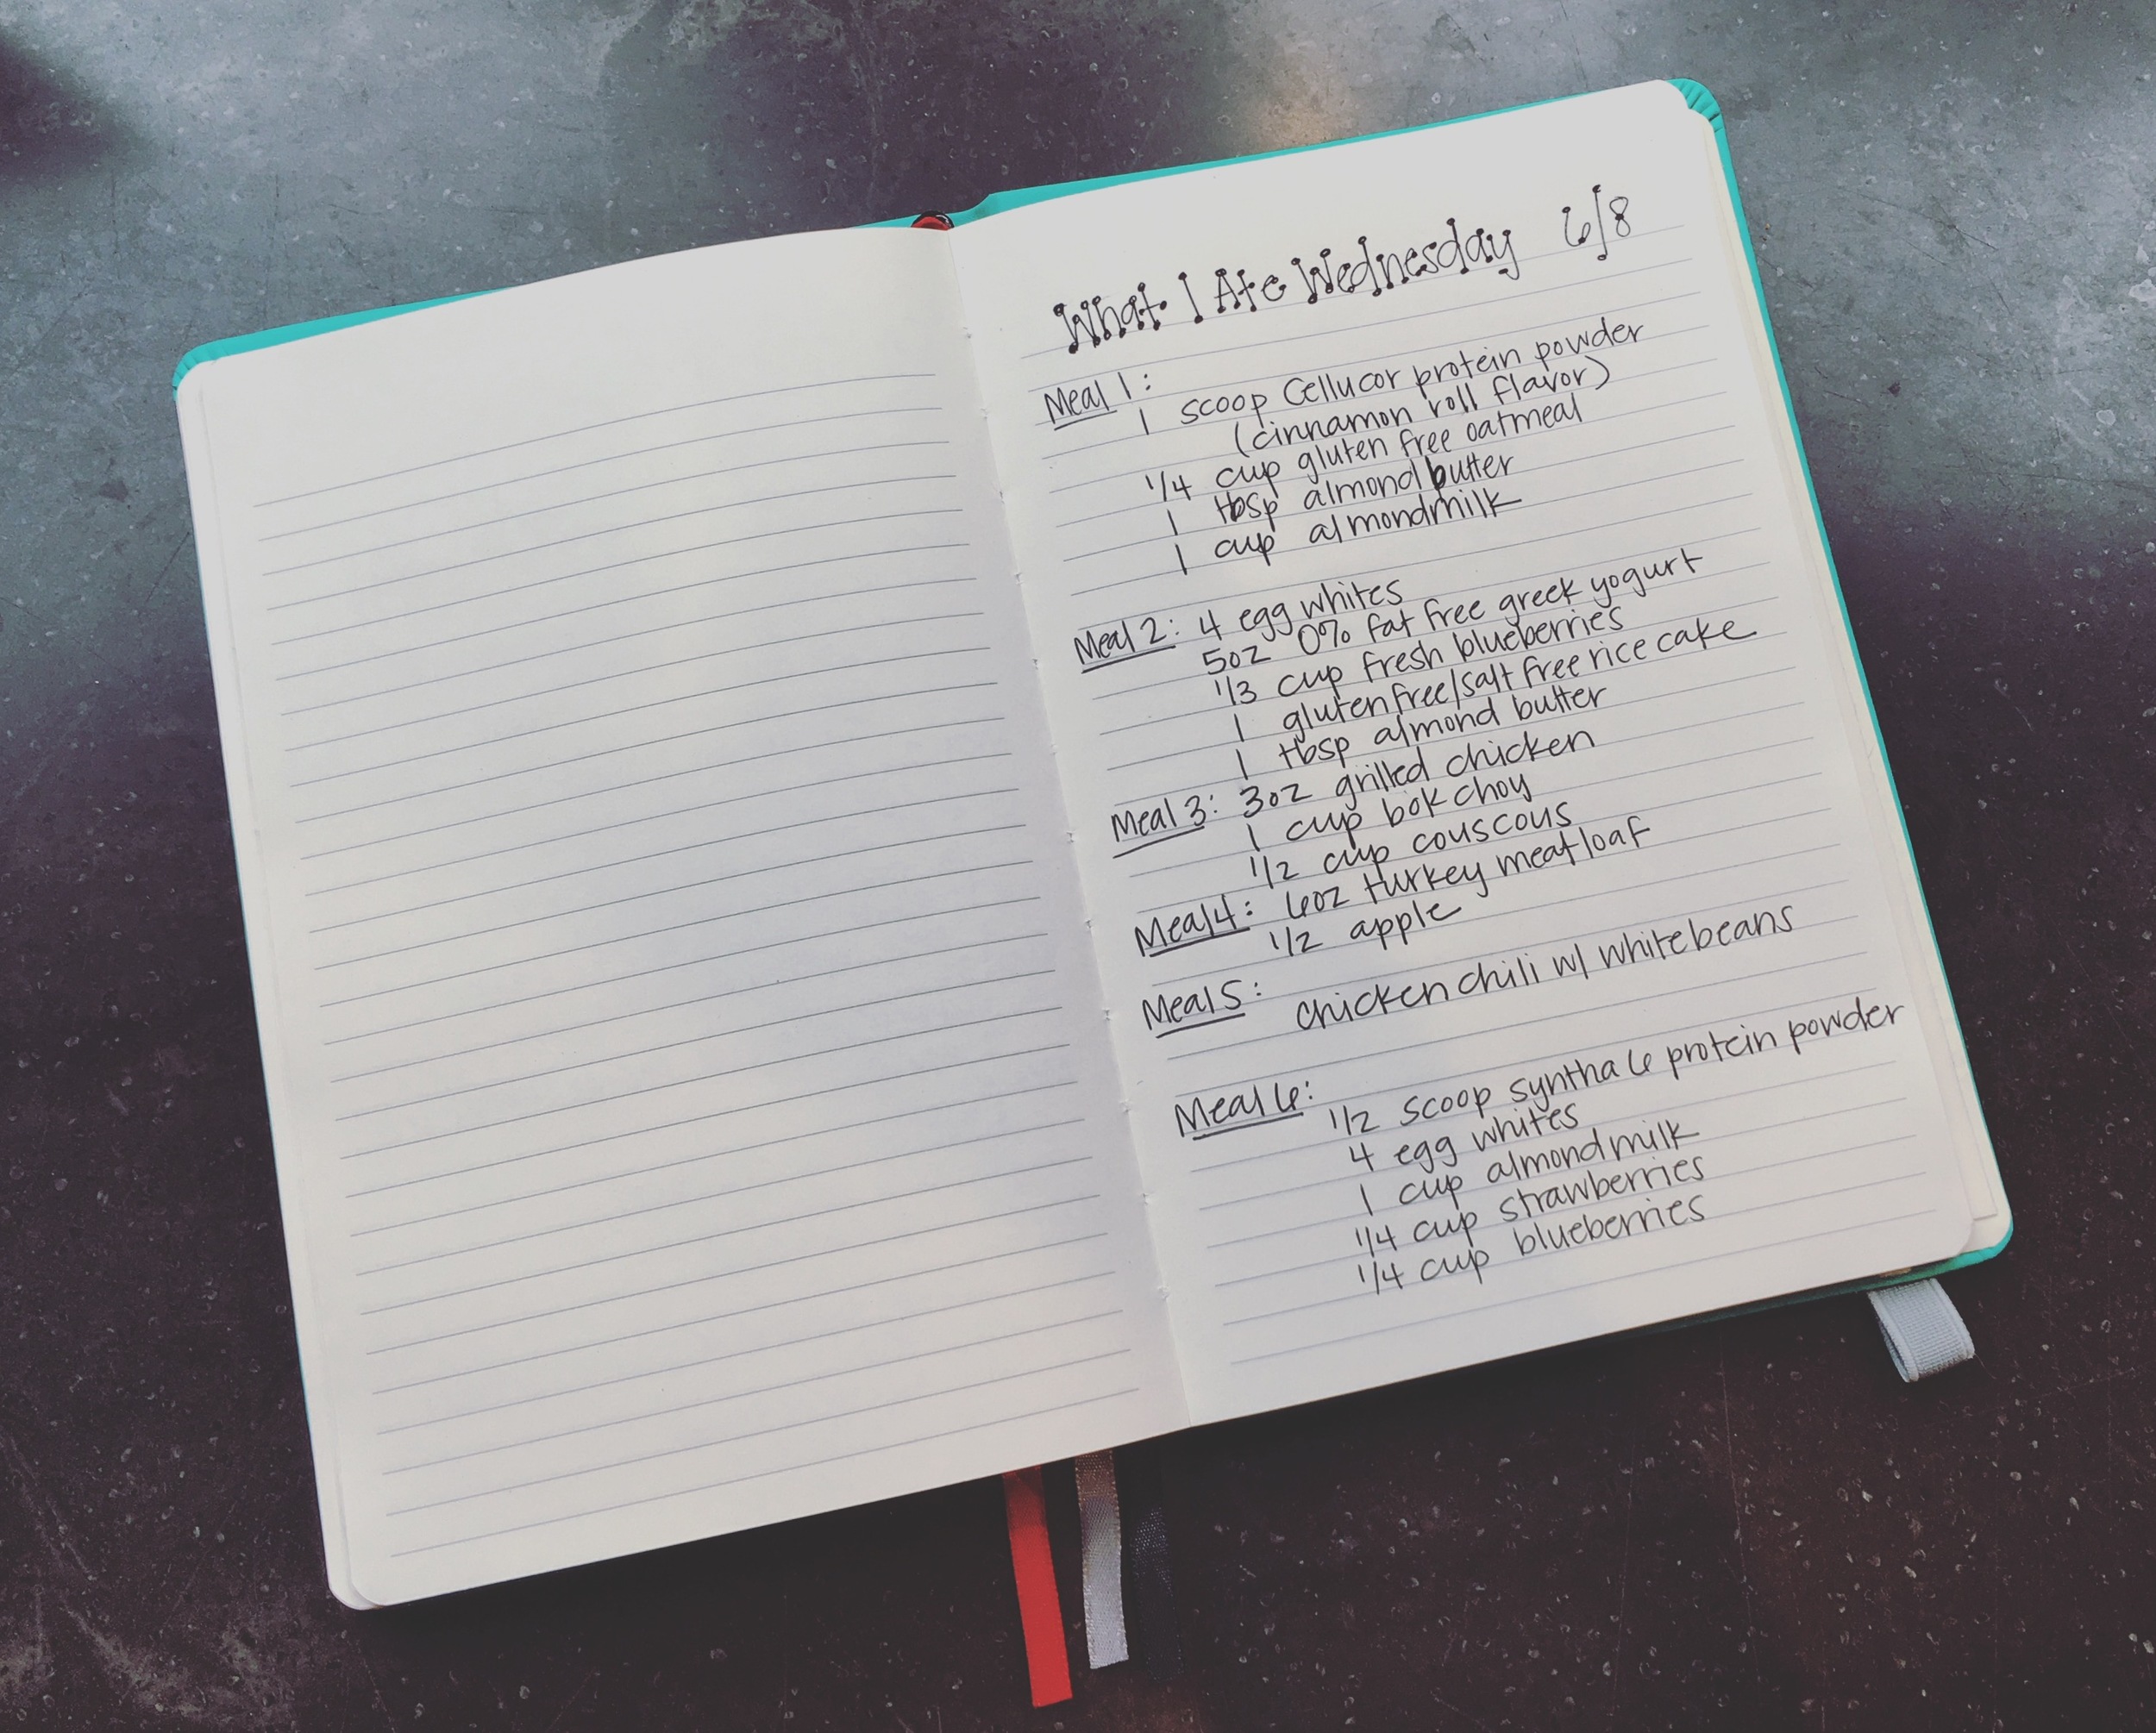 What I Ate Wednesday 6/8
Meal 1:
1 scoop Cellucor protein powder
(cinnamon roll flavor)
1/4 cup gluten free oatmeal
1 tbsp almond butter
1 cup almondmilk
Meal 2: 4 egg whites
5oz 0% fat free greek yogurt
1/3 cup fresh blueberries
1 glutenfree/salt free rice cake
1 tbsp almond butter
Meal 3: 3oz grilled chicken
1 cup bok choy
1/2 cup couscous
Meal 4: 6oz turkey meatloaf
1/2 apple
Meal 5: chicken chili w/ white beans
Meal 6:
1/2 scoop syntha 6 protein powder
4 egg whites
1 cup almondmilk
1/4 cup strawberries
1/4 cup blueberries